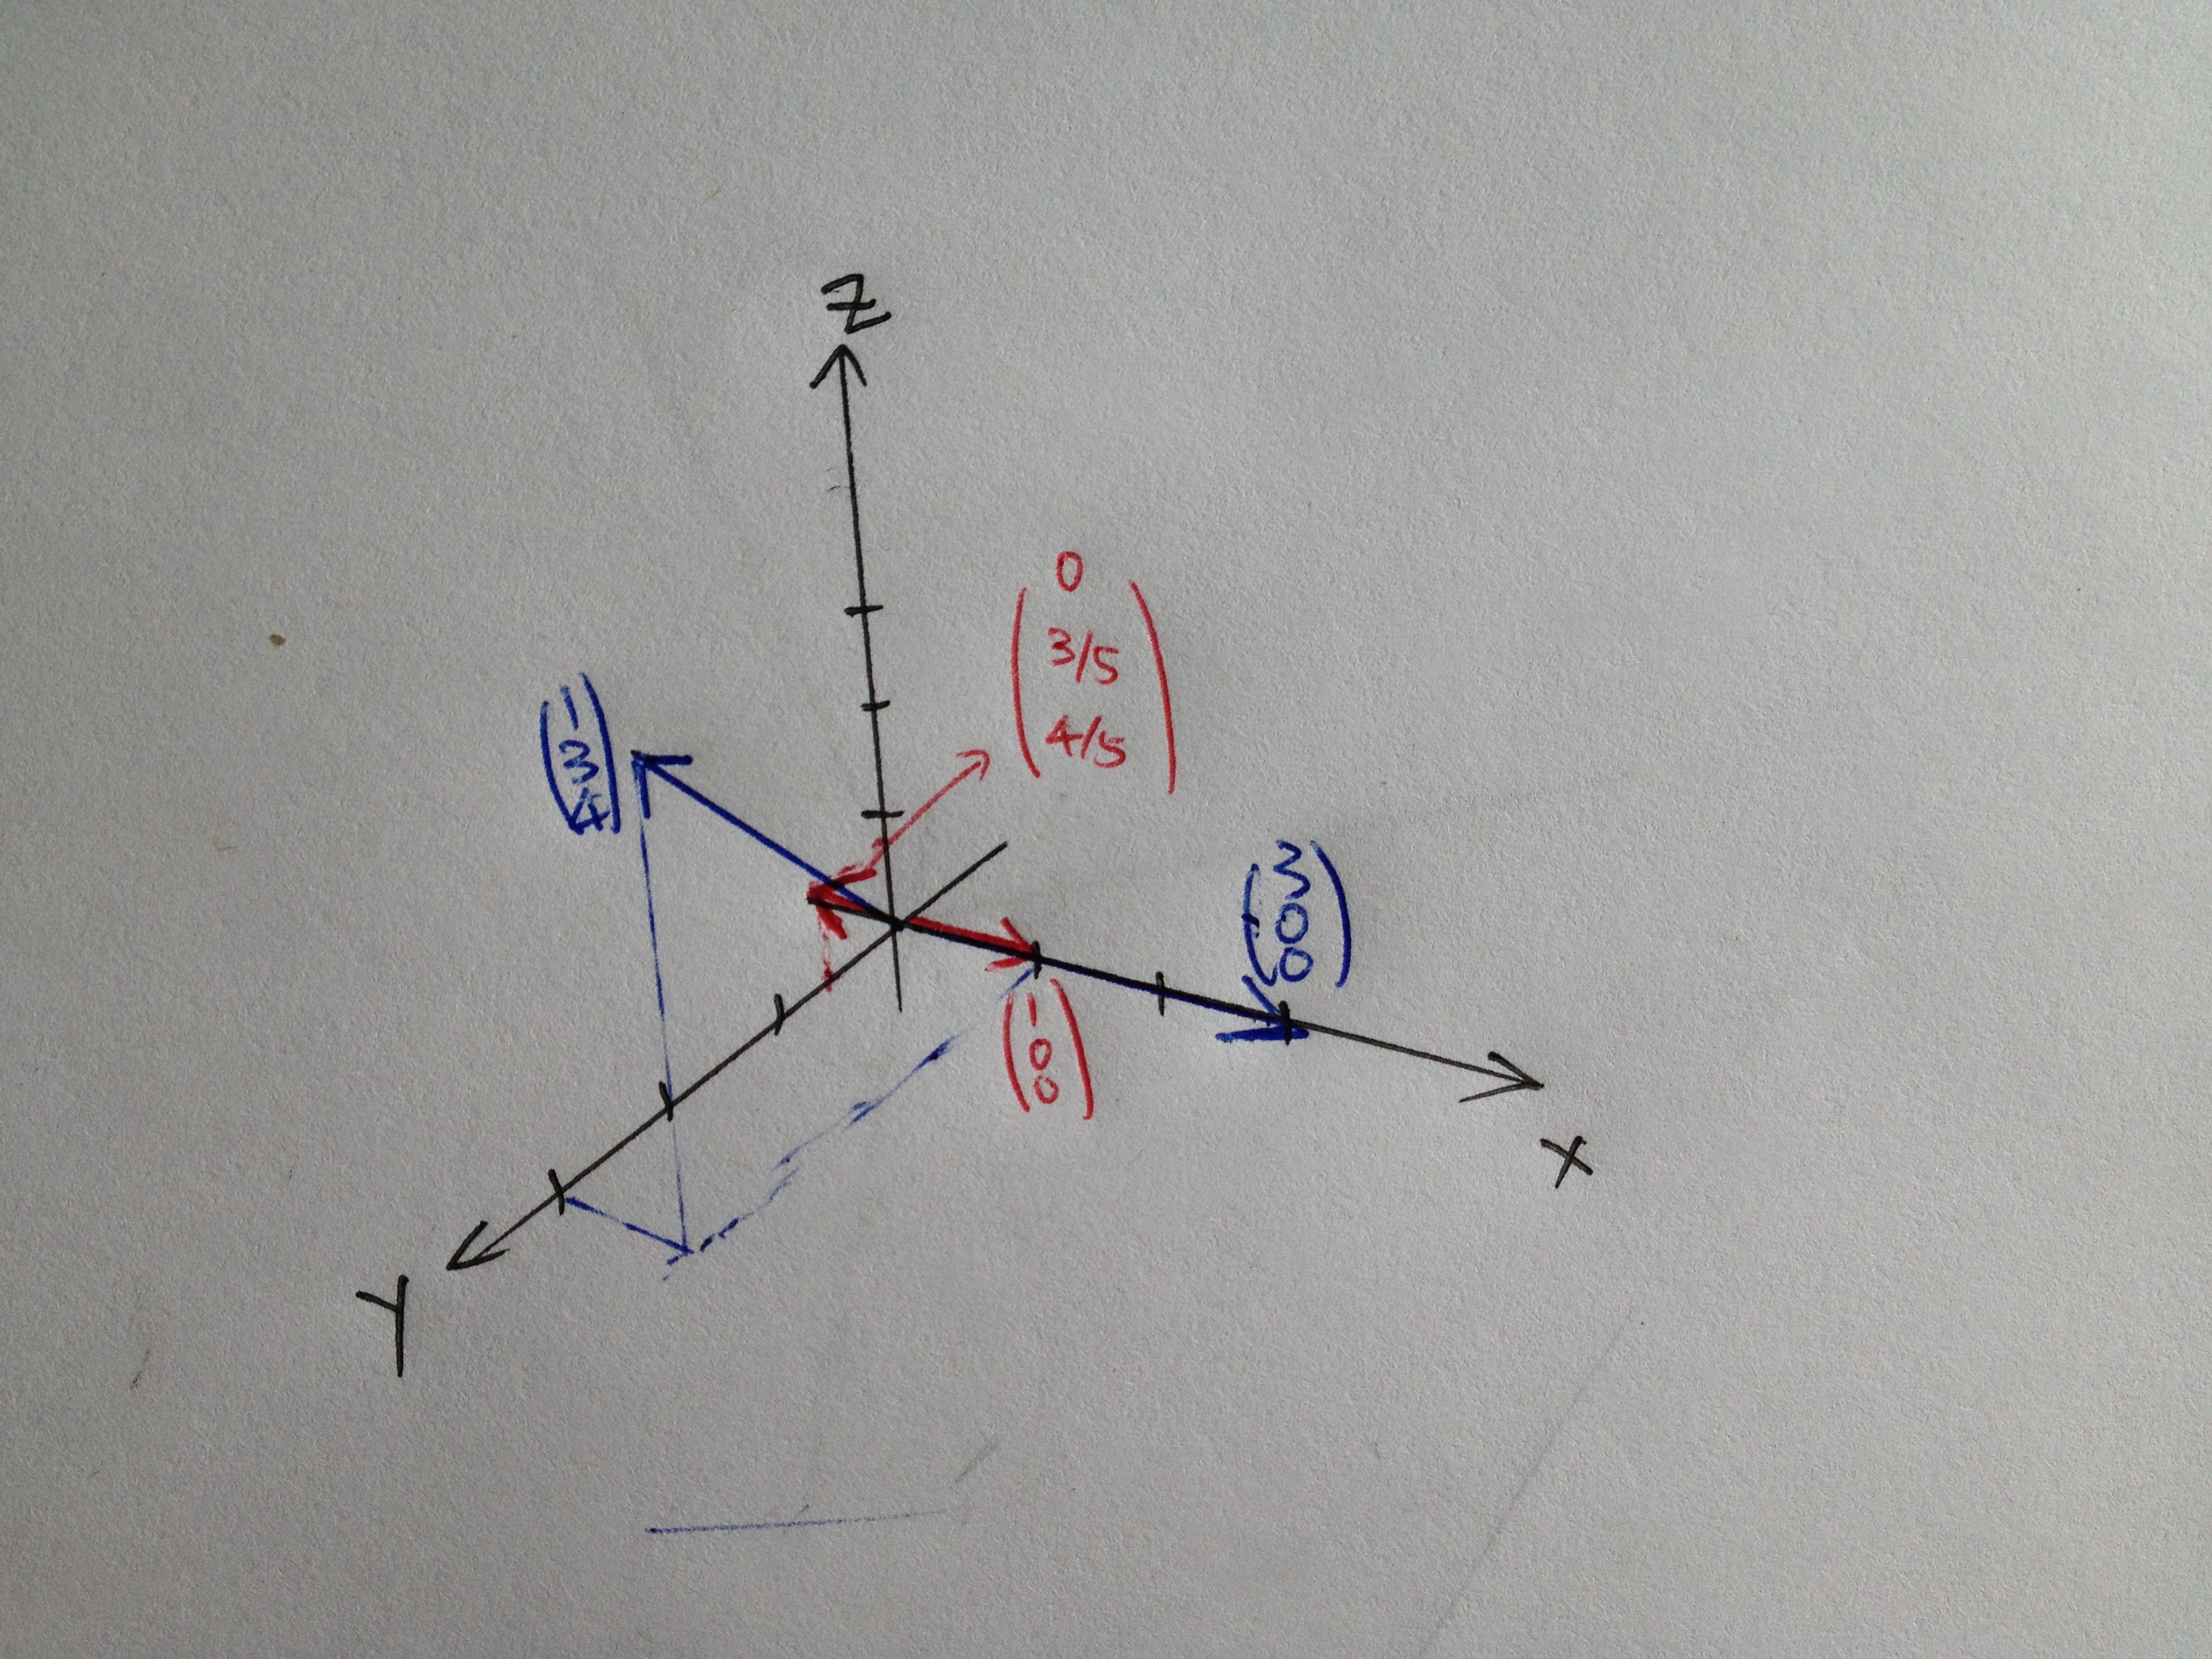 Z
0
3/5
4/5
1
3
4
3
0
0
1
0
0
X
Y